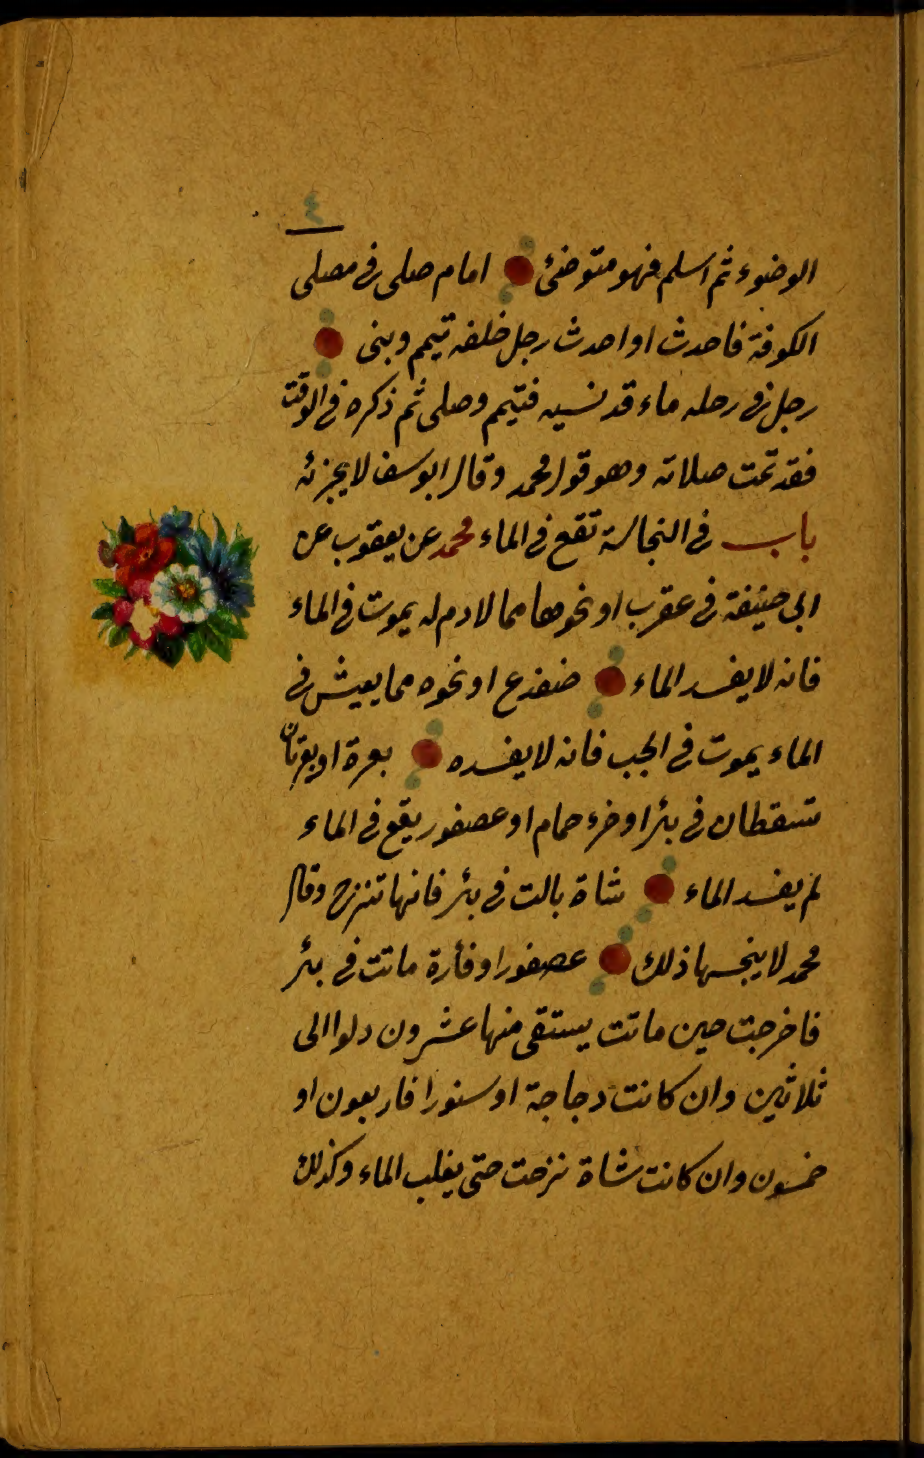 ٤
الوضوء ثم اسلم فهو متوضئ امام صلى فى مصلى
الكوفة فاحدث او احدث رجل خلفه تيمم وبنى
رجل فى رحله ماء قد نسيه فتيمم وصلى ثم ذكره فى الوقت
فقد تمت صلاته وهو قول محمد وقال ابو سف لا يجزئه
باب فى النجاسة تقع فى الماء محمد عن يعقوب عن
ابى حنيفة فى عقرب او نحوها مما لا دم له يموت فى الماء
فانه لا يفسد الماء ضفدع او نحوه مما يعيش فى
الماء يموت فى الجب فانه لا يفسده بعرة او بعرتان
تسقطان فى بئر او خرء حمام او عصفور يقع فى الماء
لم يفسد الماء شاة بالت فى بئر فانها تنزح وقال
محمد لا ينجسها ذلك عصفور او فأرة ماتت فى بئر
فاخرجت حين ماتت يستقى منها عشرون دلوا الى
ثلاثين وان كانت دجاجة او سنورا فاربعون او
خمسون وان كانت شاة نزحت حتى يغلب الماء وكذلك